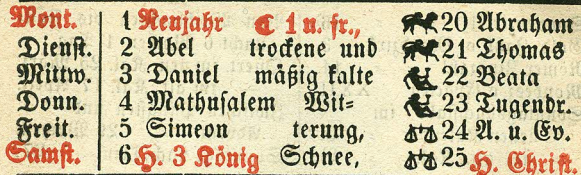 Mont. 1 Neujahr ☾ 1 u. fr., 20 Abraham
Dienst. 2 Abel trockene und 21 Thomas
Mittw. 3 Daniel mäßig kalte 22 Beata
Donn. 4 Mathusalem Wit- 23 Tugendr.
Freit. 5 Simeon terung, 24 A. u. Ev.
Samst. 6 H. 3 König Schnee, 25 H. Christ.